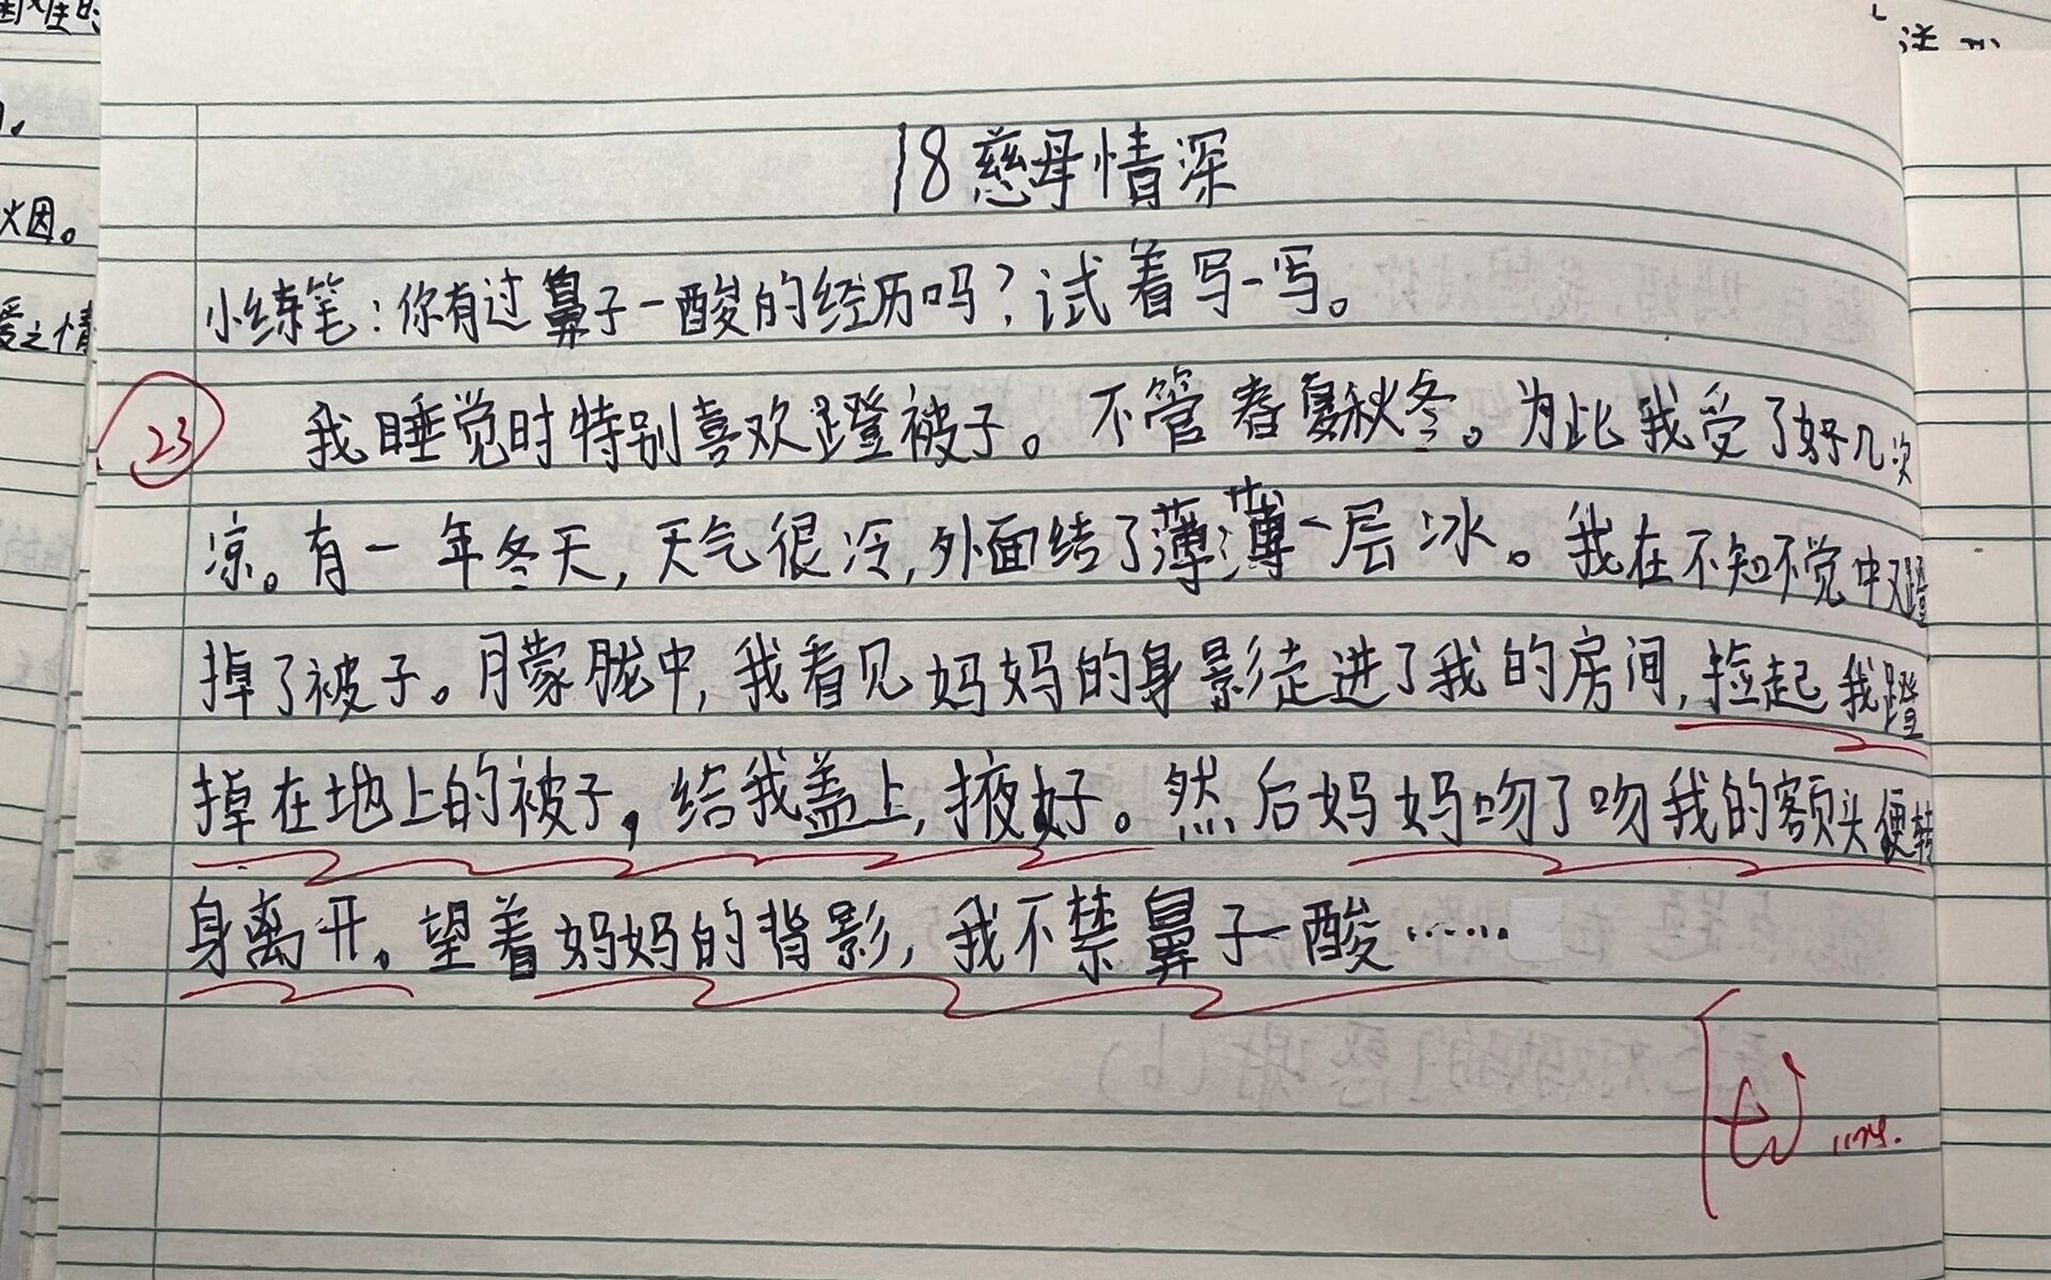 18 慈母情深
小练笔：你有过鼻子一酸的经历吗？试着写一写。
23
我睡觉时特别喜欢蹬被子。不管春夏秋冬。为此我受了好几次
凉。有一年冬天，天气很冷，外面结了薄薄一层冰。我在不知不觉中又蹬
掉了被子。朦胧中，我看见妈妈的身影走进了我的房间，捡起我蹬
掉在地上的被子，给我盖上，掖好。然后妈妈吻了吻我的额头便转
身离开。望着妈妈的背影，我不禁鼻子一酸……
火因。
爱之情